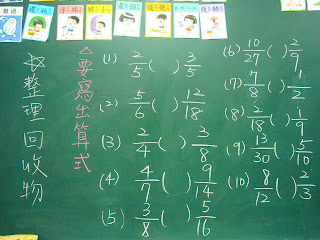 ☆整理回收物
△要寫出算式
(1) 2/5 ( ) 3/5
(2) 5/6 ( ) 12/18
(3) 2/4 ( ) 3/8
(4) 4/7 ( ) 9/14
(5) 3/8 ( ) 5/16
(6) 10/27 ( ) 2/9
(7) 7/8 ( ) 1/2
(8) 2/18 ( ) 1/9
(9) 13/30 ( ) 5/10
(10) 8/12 ( ) 2/3